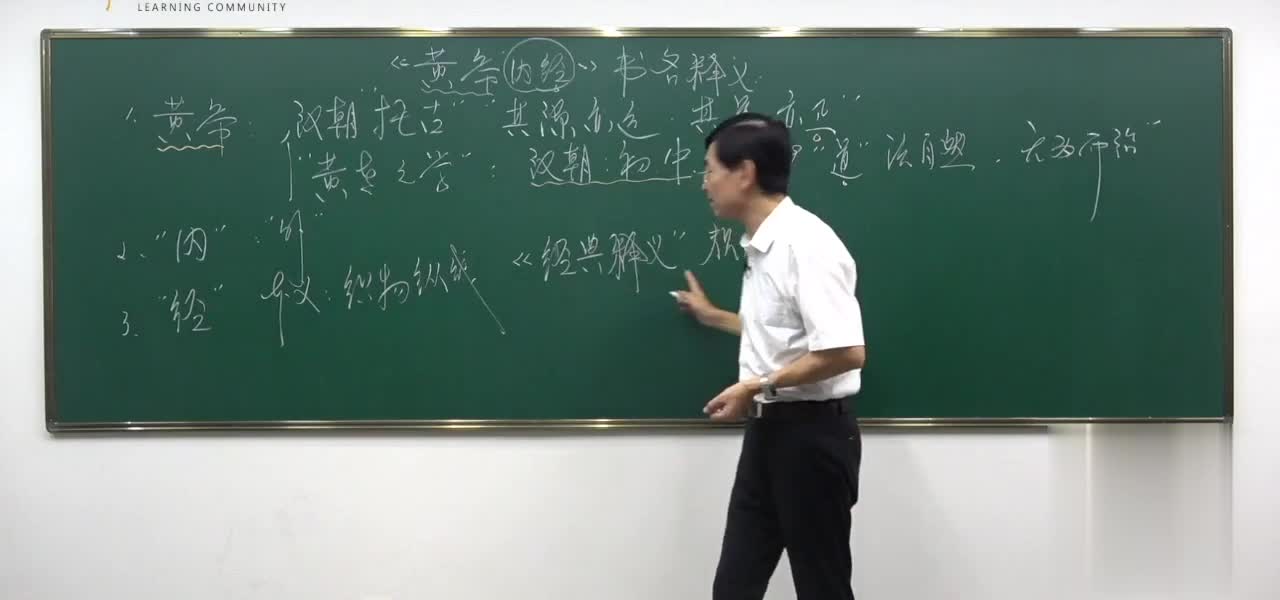 LEARNING COMMUNITY
《黄帝内经》书名释义
1. 黄帝: 汉朝"托古" "其源亦远, 其 亦
"黄老之学": 汉朝:初中 道"法自然. 无为而治"
2. "内": "外"
《经典释义"
3. "经" 本义: 织物纵线